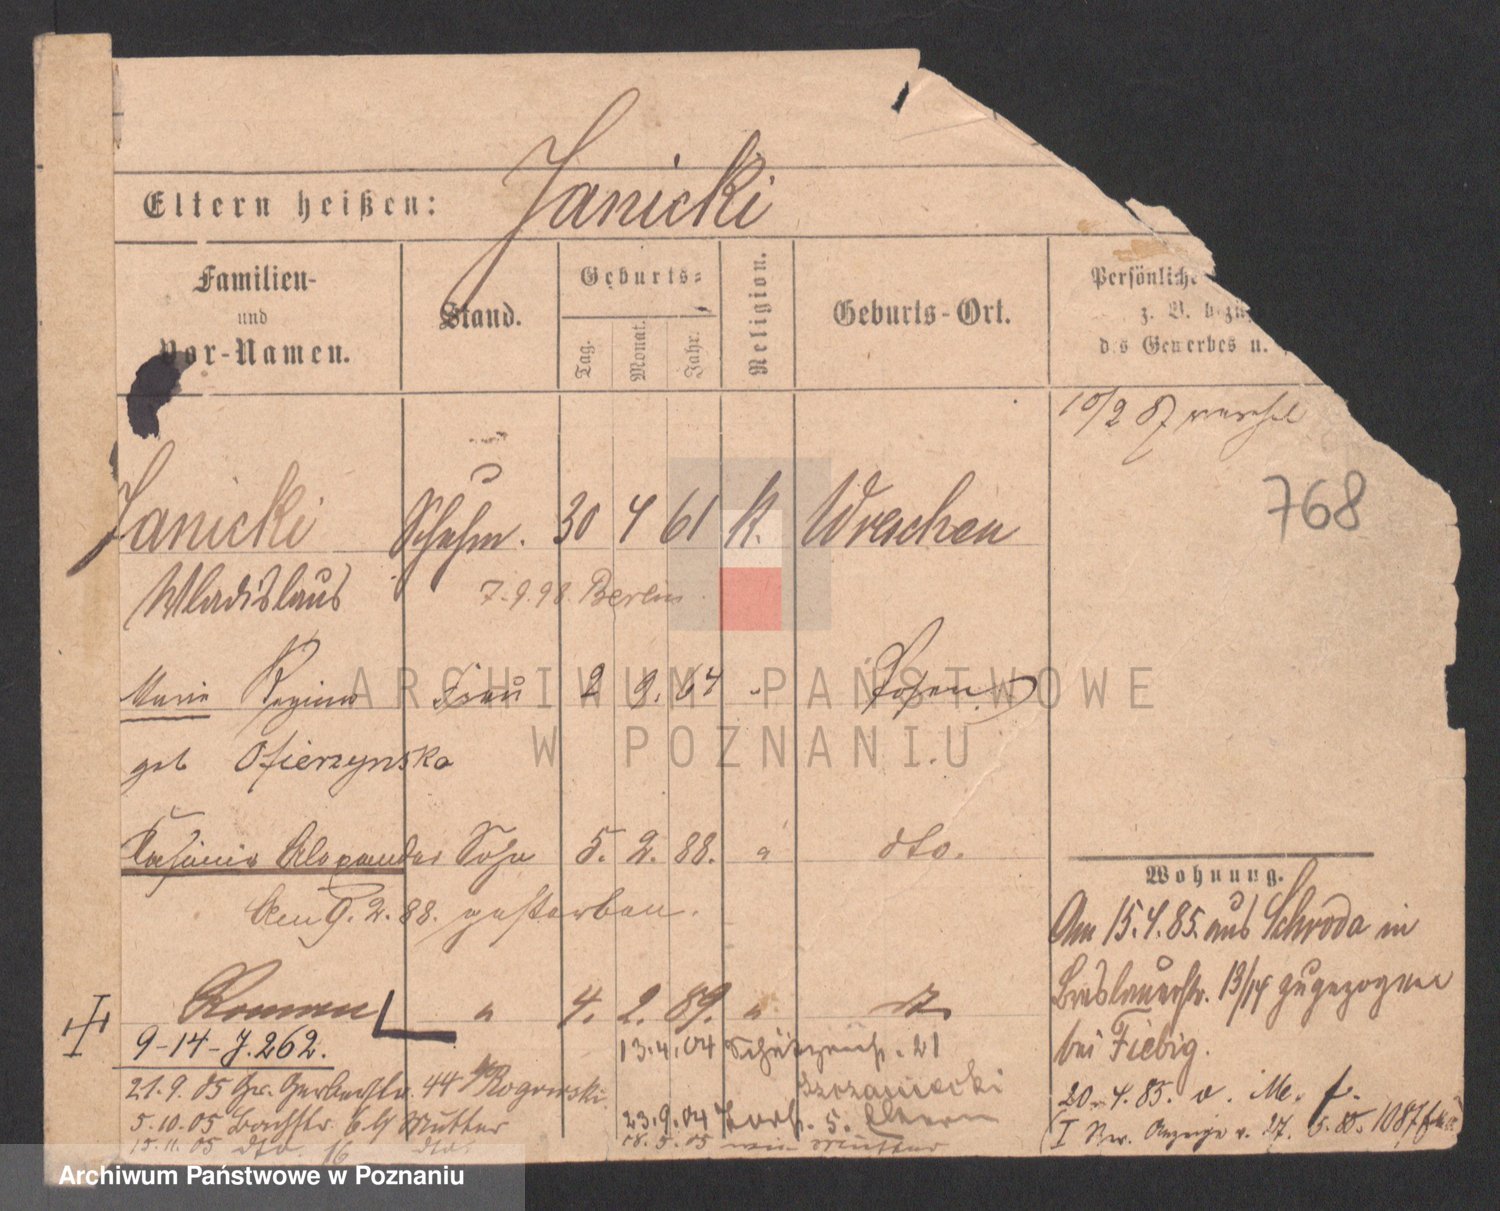 Janicki
Eltern heißen:
Familien-
und
Vor-Namen.
Stand.
Geburts-
Tag.
Monat.
Jahr.
Religion.
Geburts-Ort.
Persönliche
z. B. bezüg
des Gewerbes u.
10/2 87
768
Janicki Schuhm. 30 4 61 K. Wreschen
Wladislaus
7.9.98. Berlin
Marie Regina Frau 2 9. 64 " Posen
geb Ofierzynska
Casimir Alexander Sohn 5. 2. 88. " dto.
den 9. 2. 88. gestorben.
Roman " 4. 2. 89. "
9-14-J.262.
21.9.05 Gr. Gerberstr. 44 Rogowski
5.10.05 Bachstr. Mutter
15.11.05 dto. 16 dto.
13.4.04 Schützenstr. 21
23.9.04 5. Eltern
Mutter
Wohnung.
Am 15.4.85. aus Schroda in
Breslauerstr. 13/14 zugezogen
bei Fiebig.
20.4.85. v. M. f.
Anzeige v. 27.
ARCHIWUM PAŃSTWOWE
W POZNANIU
Archiwum Państwowe w Poznaniu